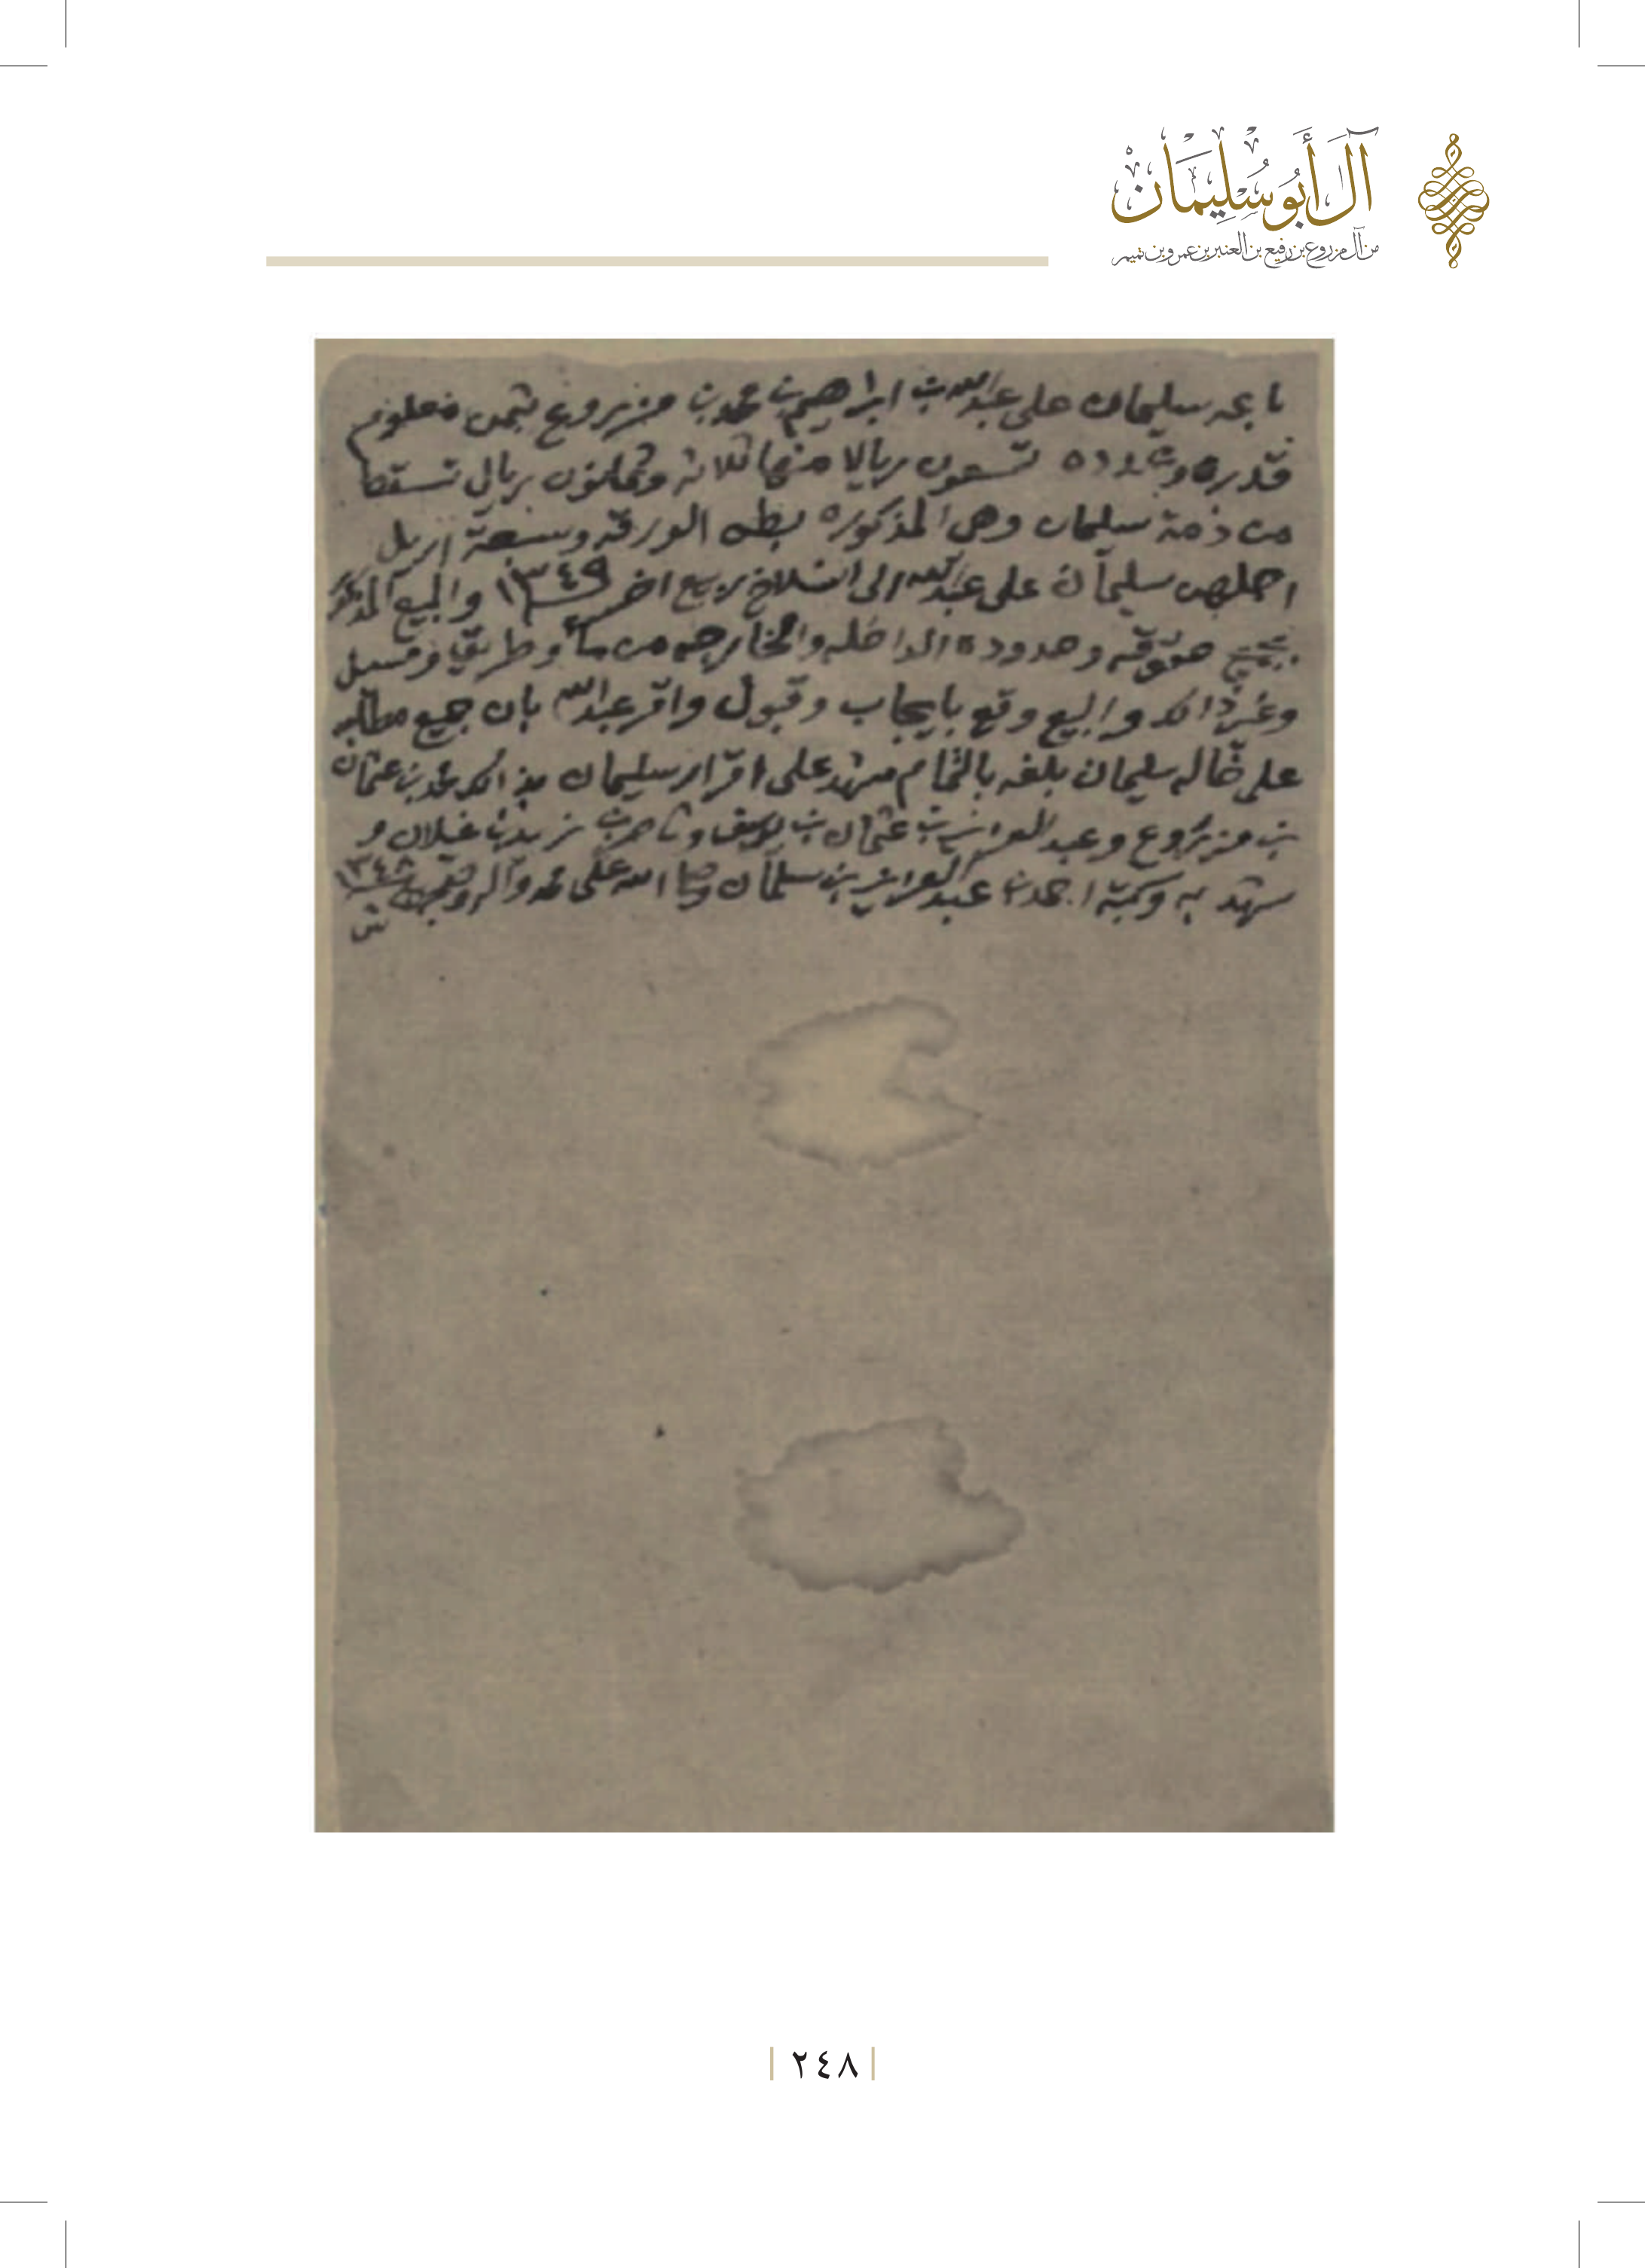 آل أبو سليمان
من آل مزروع بن رفيع بن العنبر بن عمرو بن تميم
سليمان على عبدالله بن ابراهيم بن محمد بن مزروع بثمن معلوم
قدره وعدده تسعون ريالا منها ثلاثه وثمانون ريال تسقط
من ذمة سليمان وهي المذكوره بطن الورقه وسبعة اريل
اجلهن سليمان على عبدالله الى انسلاخ ربيع اخر ١٣٤٩ والمبيع المذكور
بجميع حقوقه وحدوده الداخله والخارجه من ماء وطريق ومسيل
وغير ذالك والبيع وقع بايجاب وقبول واقر عبدالله بان جميع مطالبه
على خاله سليمان بلغه بالتمام شهد على اقرار سليمان بذالك محمد بن عثمان
بن مزروع وعبدالعزيز بن عثمان بن يوسف وناصر بن زيد بن غيلان و
شهد به وكتبه احمد بن عبدالعزيز بن سليمان وصلى الله على محمد وآله وصحبه ١٣٤٨
٢٤٨